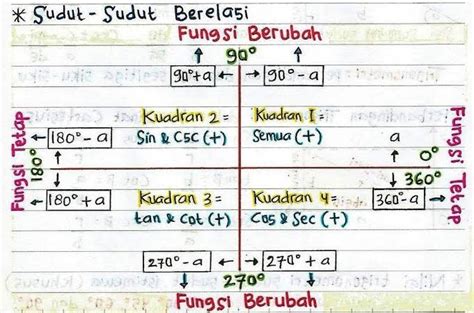 * Sudut - Sudut Berelasi
Fungsi Berubah
90°
90°+a
90°-a
Kuadran 2 =
Sin & CSC (+)
Kuadran I =
Semua (+)
Fungsi Tetap
180°
180°-a
a
0°
Fungsi Tetap
180°+a
Kuadran 3 =
tan & Cot (+)
Kuadran 4=
Cos & Sec (+)
360°
360°-a
270°-a
270°+a
270°
Fungsi Berubah